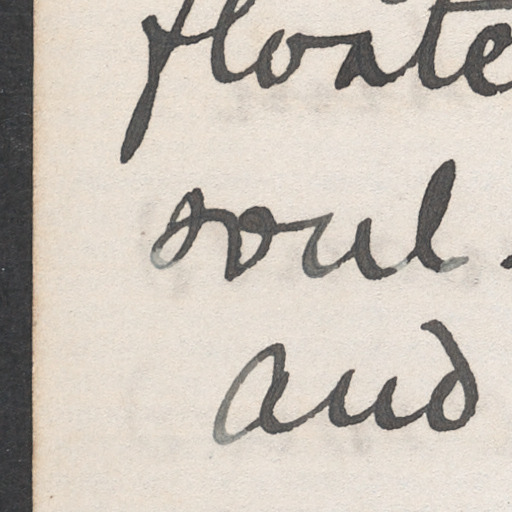 floate
soul.
and